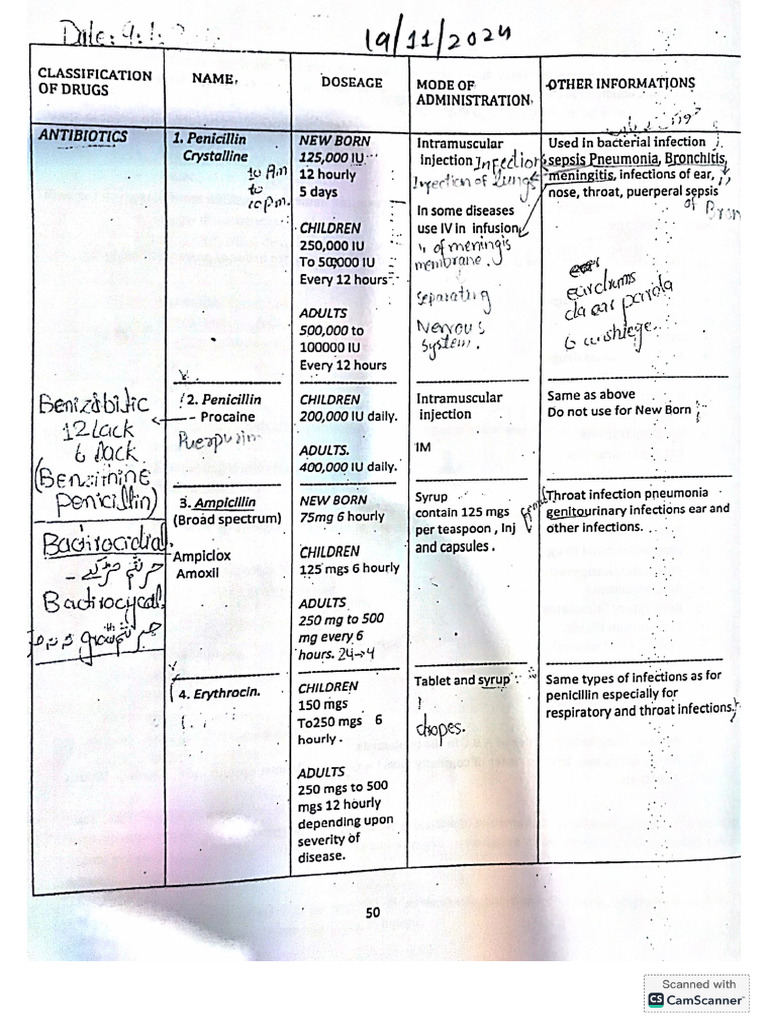 Date:
19/11/2024
CLASSIFICATION OF DRUGS
NAME.
DOSEAGE
MODE OF ADMINISTRATION.
OTHER INFORMATIONS
ANTIBIOTICS
1. Penicillin
Crystalline
10 Am
to
10 pm.
NEW BORN
125,000 IU
12 hourly
5 days
CHILDREN
250,000 IU
To 500,000 IU
Every 12 hours
ADULTS
500,000 to
100000 IU
Every 12 hours
Intramuscular
injection
Infection of Lungs
In some diseases
use IV in infusion
" of meningis
membrane.
Separating
Nervous
System.
Used in bacterial infection
sepsis Pneumonia, Bronchitis,
meningitis, infections of ear,
nose, throat, puerperal sepsis
of Bron
eardrums
2. Penicillin
– Procaine
CHILDREN
200,000 IU daily.
ADULTS.
400,000 IU daily.
Intramuscular
injection
1M
Same as above
Do not use for New Born
12 Lack
6 Lack
Penicillin)
3. Ampicillin
(Broad spectrum)
Ampidox
Amoxil
NEW BORN
75mg 6 hourly
CHILDREN
125 mgs 6 hourly
ADULTS
250 mg to 500
mg every 6
hours. 24→4
Syrup
contain 125 mgs
per teaspoon , Inj
and capsules .
Throat infection pneumonia
genitourinary infections ear and
other infections.
Bactirocidal.
Bactirocycal.
growth
4. Erythrocin.
CHILDREN
150 mgs
To250 mgs 6
hourly .
ADULTS
250 mgs to 500
mgs 12 hourly
depending upon
severity of
disease.
Tablet and syrup
dropes.
Same types of infections as for
penicillin especially for
respiratory and throat infections.
50
Scanned with
CS CamScanner